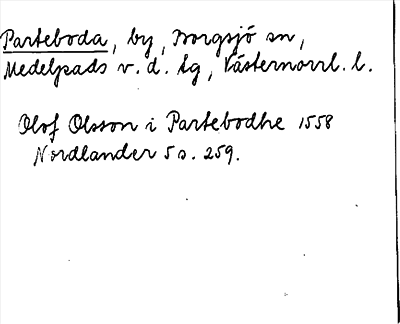 Parteboda, by, Borgsjö sn,
Medelpads v. d. tg, Västernorrl. l.
Olof Olsson i Partebodhe 1558
Nordlander 5 s. 259.